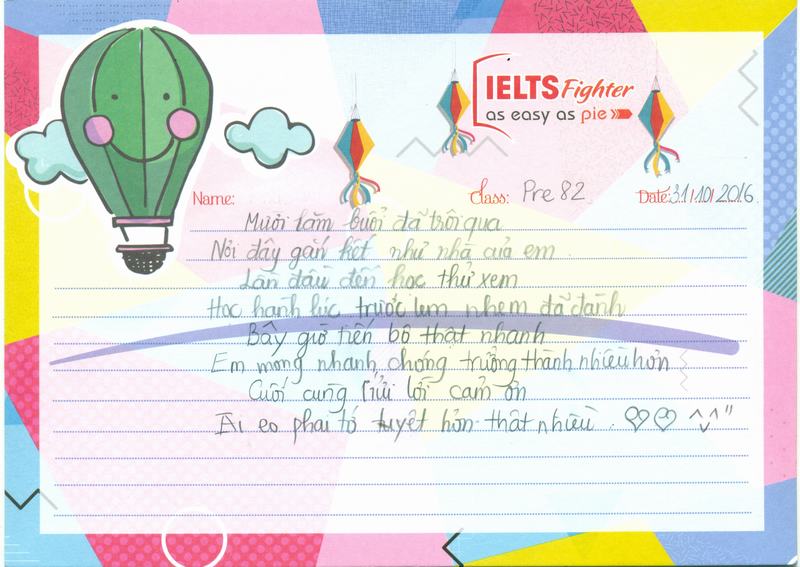 IELTS Fighter
as easy as pie
Name:
Class: Pre 82
Date: 31/10/2016
Mười lăm buổi đã trôi qua
Nơi đây gắn kết như nhà của em.
Lần đầu đến học thử xem
Học hành lúc trước lem nhem đã đành
Bây giờ tiến bộ thật nhanh
Em mong nhanh chóng trưởng thành nhiều hơn
Cuối cùng gửi lời cảm ơn
Ai eo phai tớ tuyệt hơn thật nhiều. ♡♡ ^^"